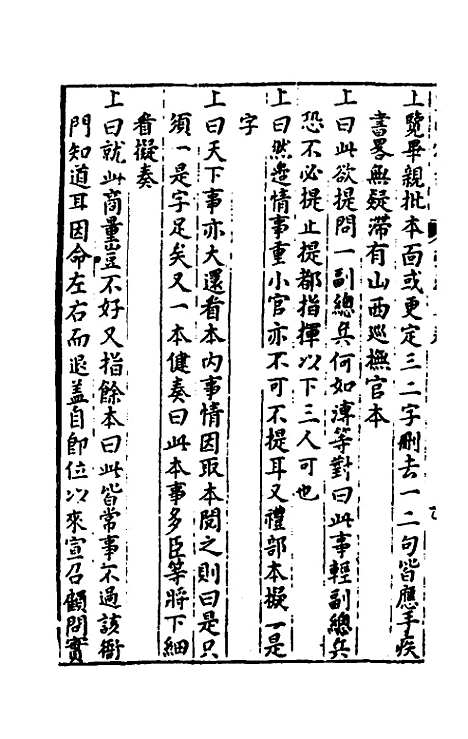 上覽畢親批本面或更定三二字刪去一二句皆應手疾
書畧無疑滯有山西廵撫官本
上曰此欲提問一副總兵何如溥等對曰此事輕副總兵
恐不必提止提都指揮以下三人可也
上曰然邊情事重小官亦不可不提耳又禮部本擬一是
字
上曰天下事亦大還看本內事情因取本閱之則曰是只
須一是字足矣又一本健奏曰此本事多臣等將下細
看擬奏
上曰就此商量豈不好又指餘本曰此皆常事不過該衙
門知道耳因命左右而退盖自卽位以來宣召顧問實